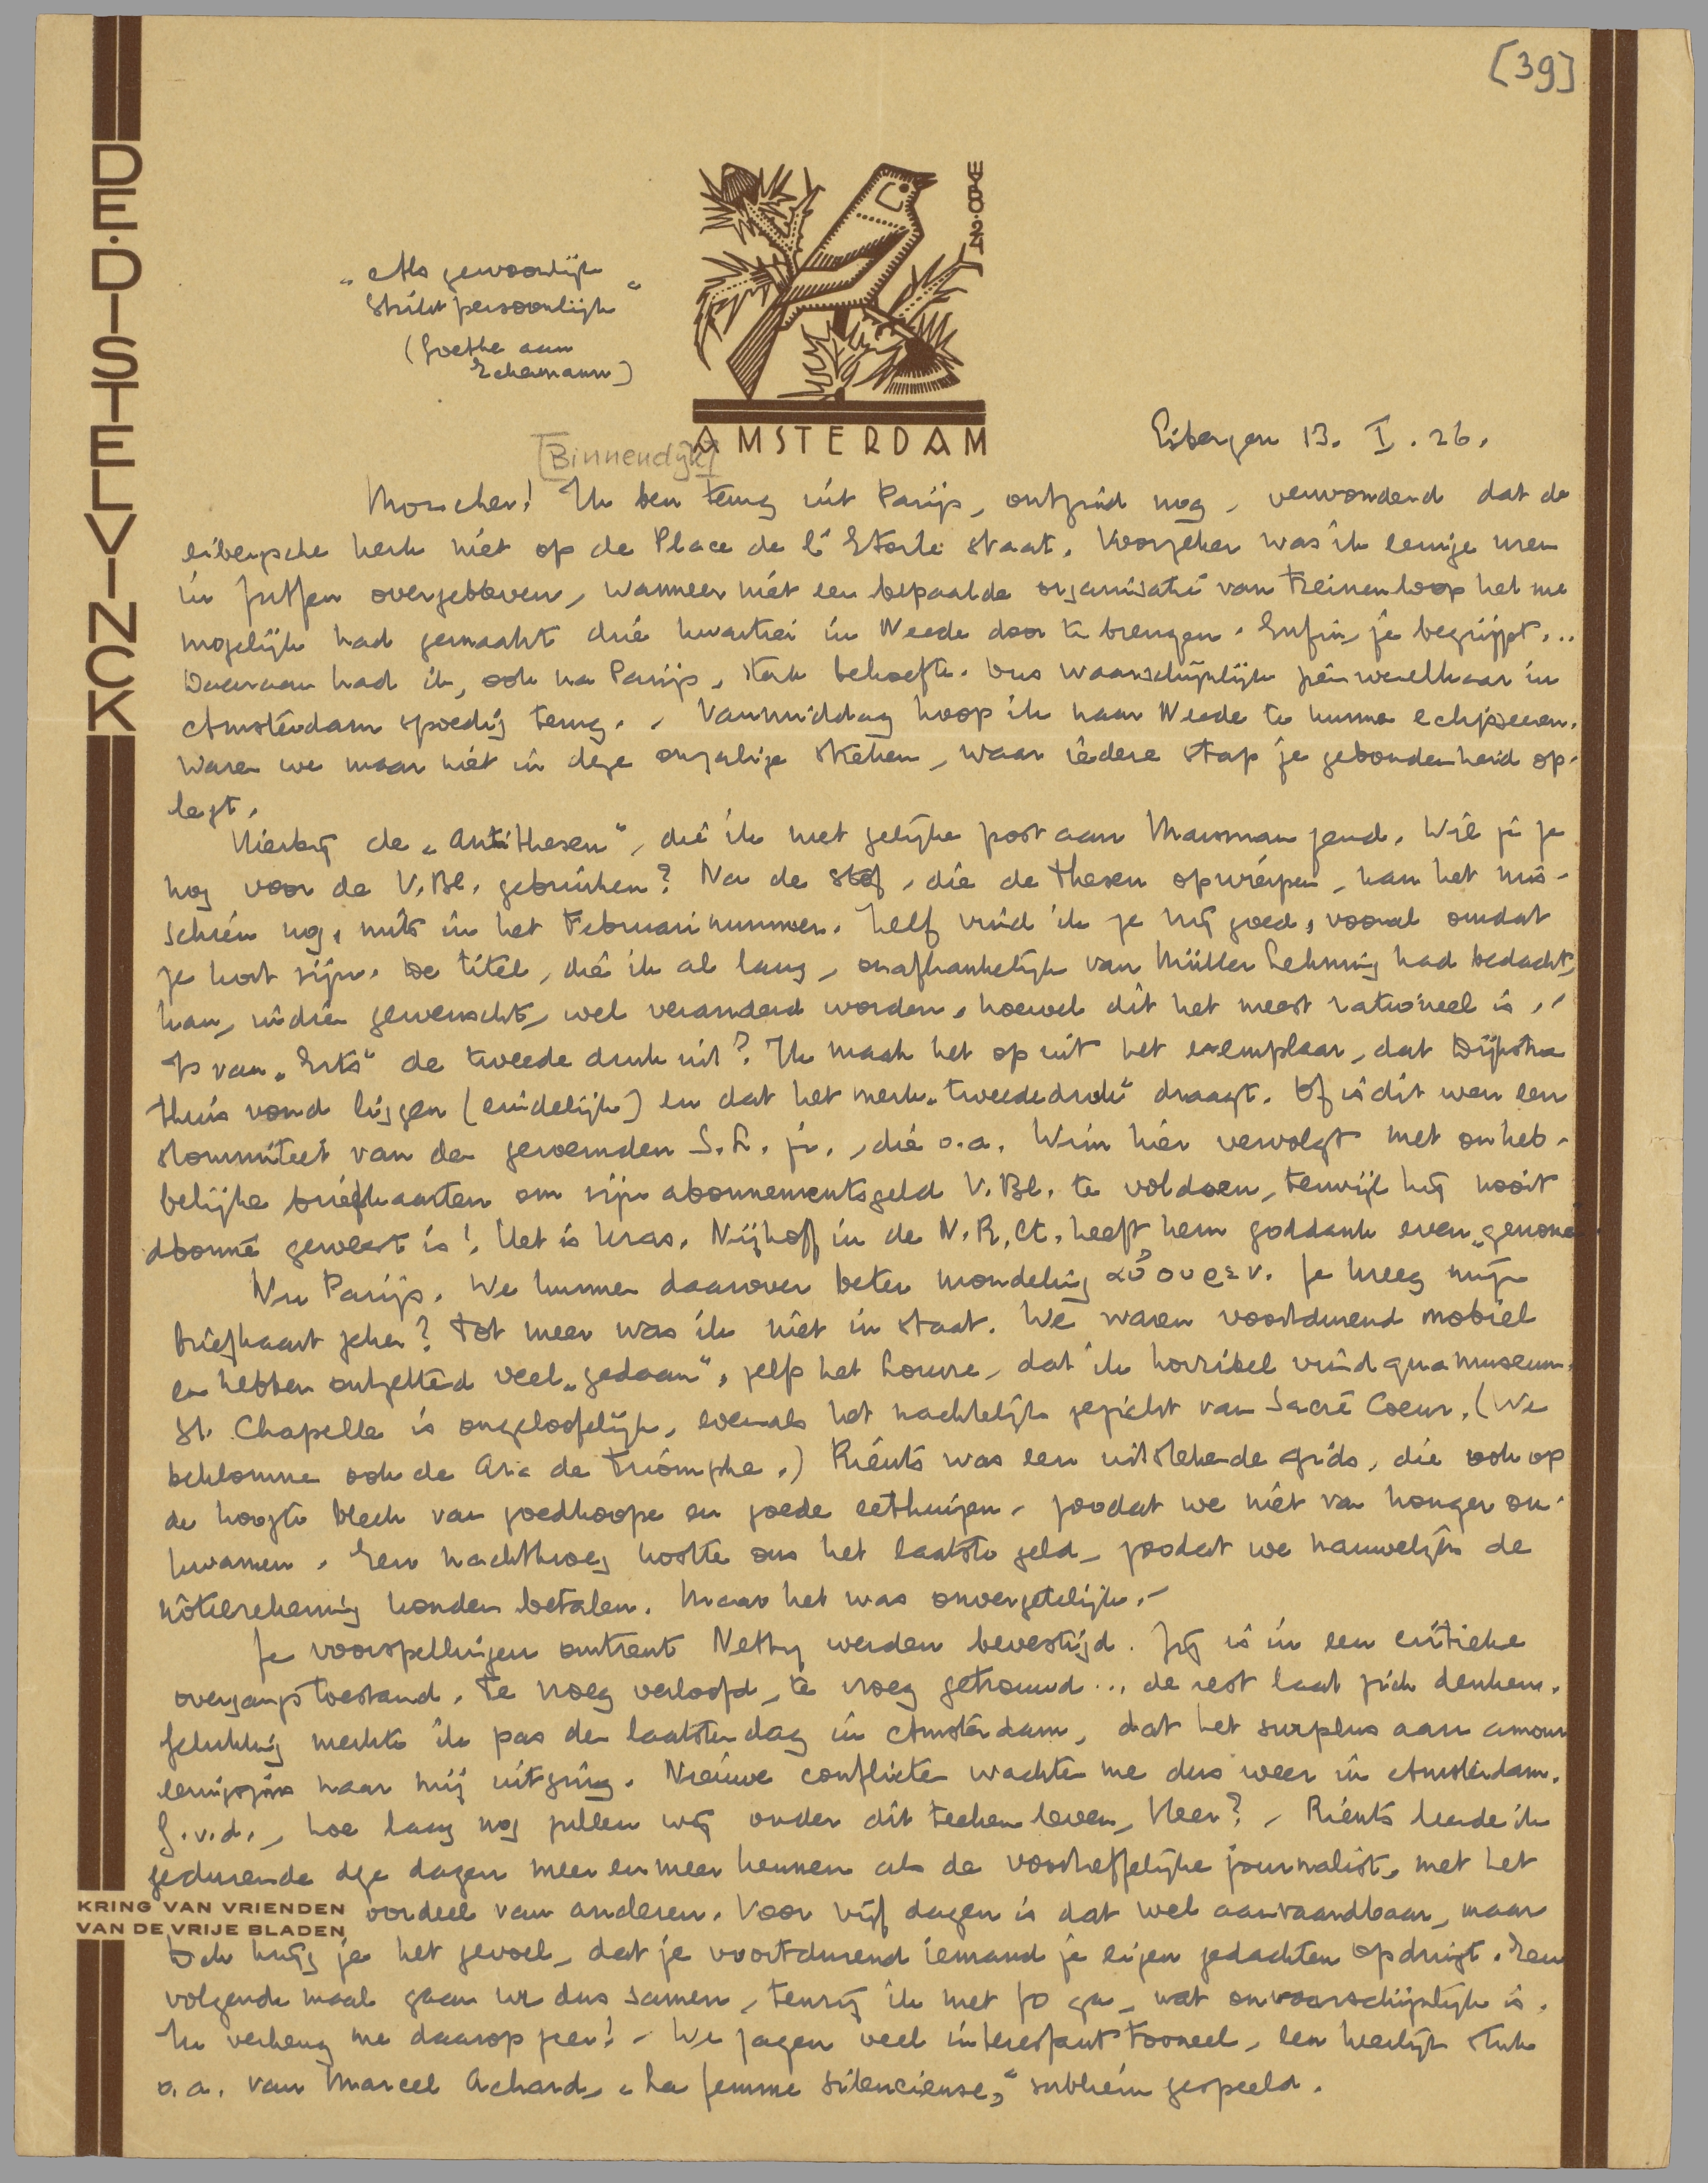 [39]
DE·DISTELVINCK
„Als gewoonlijk
Strikt persoonlijk“
(Goethe aan
Eckermann)
AMSTERDAM
[Binnendijk]
Eibergen 13. I. 26.
Mon cher! Ik ben terug uit Parijs, ontzind nog, verwonderd dat de
eibergsche kerk niet op de Place de l'Etoile staat. Voorzeker was ik eenige uren
in Zutfen overgebleven, wanneer niet een bepaalde organisatie van treinenloop het me
mogelijk had gemaakt drie kwartier in Neede door te brengen. Enfin, je begrijpt...
Daaraan had ik, ook na Parijs, sterk behoefte. Dus waarschijnlijk zien we elkaar in
Amsterdam spoedig terug. - Vanmiddag hoop ik naar Neede te kunnen eclipseeren.
Waren we maar niet in deze onzalige steken, waar iedere stap je gebondenheid op-
legt.
Hierbij de „Antithesen“, die ik met gelijke post aan Marsman zend. Wil je ze
nog voor de V.Bl. gebruiken? Na de stof, die de thesen opwierpen, kan het mis-
schien nog, mits in het Februarinummer. Zelf vind ik ze vrij goed, vooral omdat
ze kort zijn. De titel, die ik al lang, onafhankelijk van Müller Lehning had bedacht,
kan, indien gewenscht, wel veranderd worden, hoewel dit het meest rationeel is. -
Is van „Erts“ de tweede druk uit? Ik maak het op uit het exemplaar, dat Dijkstra
thuis vond liggen (eindelijk) en dat het merk „tweede druk“ draagt. Of is dit weer een
stommiteit van den geroemden S.L. jr., die o.a. Wim hier vervolgt met onheb-
belijke briefkaarten om zijn abonnementsgeld V.Bl. te voldoen, terwijl hij nooit
abonné geweest is! Het is kras. Nijhoff in de N.R.Ct. heeft hem goddank even „genomen
Nu Parijs. We kunnen daarover beter mondeling Je kreeg mijn
briefkaart zeker? Tot meer was ik niet in staat. We waren voortdurend mobiel
en hebben ontzettend veel „gedaan“, zelfs het Louvre, dat ik horribel vind qua museum.
St. Chapelle is ongelooflijk, evenals het nachtelijk gezicht van Sacré Coeur. (We
beklommen ook de Arc de Triomphe.) Riënts was een uitstekende gids, die ook op
de hoogte bleek van goedkoope en goede eethuizen, zoodat we niet van honger om-
kwamen. Een nachtkroeg kostte ons het laatste geld, zoodat we nauwelijks de
hôtelrekening konden betalen. Maar het was onvergetelijk. -
Je voorspellingen omtrent Netty werden bevestigd. Zij is in een critieke
overgangstoestand. Te vroeg verloofd, te vroeg getrouwd... de rest laat zich denken.
Gelukkig merkte ik pas den laatsten dag in Amsterdam, dat het surplus aan amour
eenigszins naar mij uitging. Nieuwe conflicten wachten me dus weer in Amsterdam.
G.v.d., hoe lang nog zullen wij onder dit teeken leven, Heer? - Riënts leerde ik
gedurende deze dagen meer en meer kennen als de voortreffelijke journalist, met het
KRING VAN VRIENDEN
VAN DE VRIJE BLADEN
oordeel van anderen. Voor vijf dagen is dat wel aanvaardbaar, maar
toch krijg je het gevoel, dat je voortdurend iemand je eigen gedachten opdringt. Een
volgende maal gaan we dus samen, tenzij ik met Jo ga, wat onwaarschijnlijk is.
Ik verheug me daarop zeer! - We zagen veel interessant tooneel, een heerlijk stuk
o.a. van Marcel Achard, „La femme silencieuse,“ subliem gespeeld.